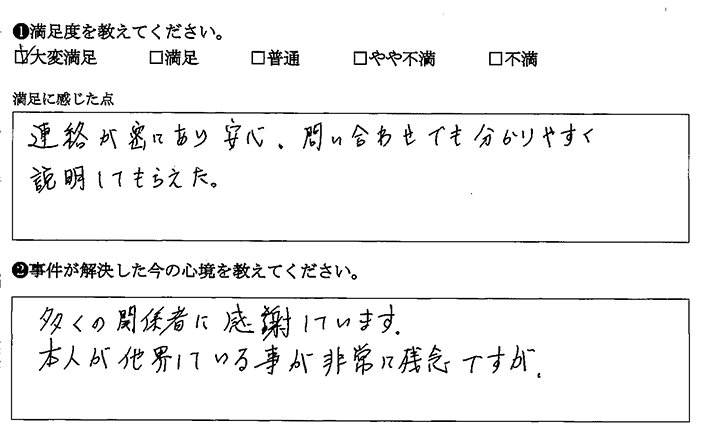 ❶満足度を教えてください。
☑大変満足 □満足 □普通 □やや不満 □不満
満足に感じた点
連絡が密にあり安心、問い合わせでも分かりやすく
説明してもらえた。
❷事件が解決した今の心境を教えてください。
多くの関係者に感謝しています。
本人が他界している事が非常に残念ですが。